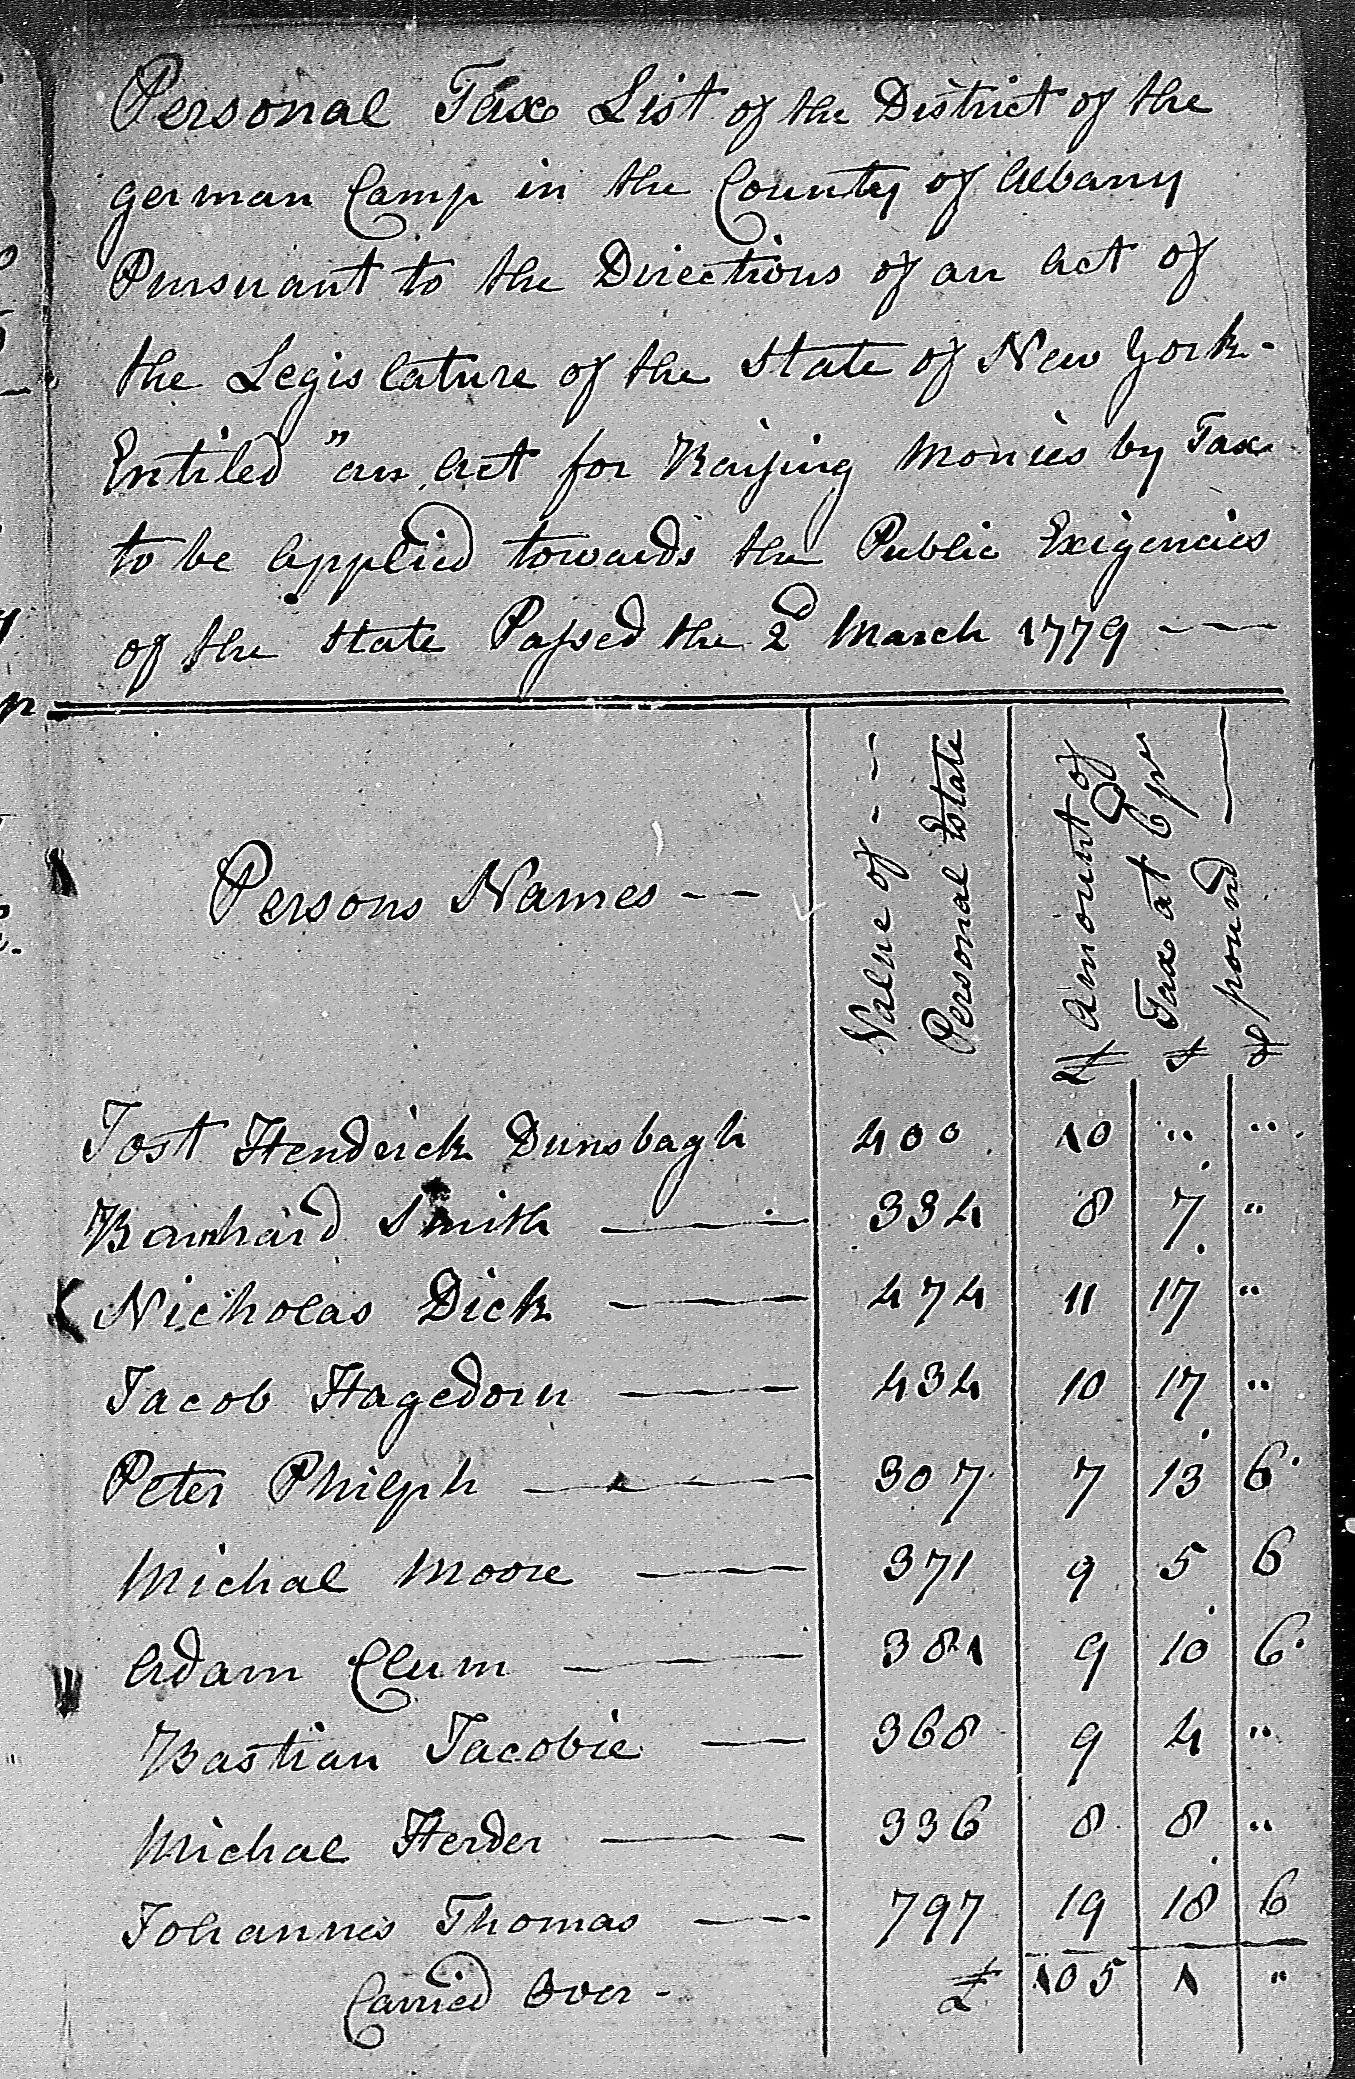 Personal Tax List of the District of the
german Camp in the County of Albany
Pursuant to the Directions of an Act of
the Legislature of the State of New York -
Entiled "an Act for Raising Monies by Tax
to be Applied towards the Public Exigencies
of the State Passed the 2d March 1779 - - -
Persons Names - -
Value of - - -
Personal Estate
Amount of
Tax at 6d pr
pound
£ s d
Jost Hendrick Dunsbagh 400 10 " "
Barnhard Smith 334 8 7 "
Nicholas Dick 474 11 17 "
Jacob Hagedorn 434 10 17 "
Peter Philyph 307 7 13 6
Michal Moore 371 9 5 6
Adam Clum 381 9 10 6
Bastian Jacobie 368 9 4 "
Michal Herder 336 8 8 "
Johannis Thomas 797 19 18 6
Carried Over - £ 105 1 "